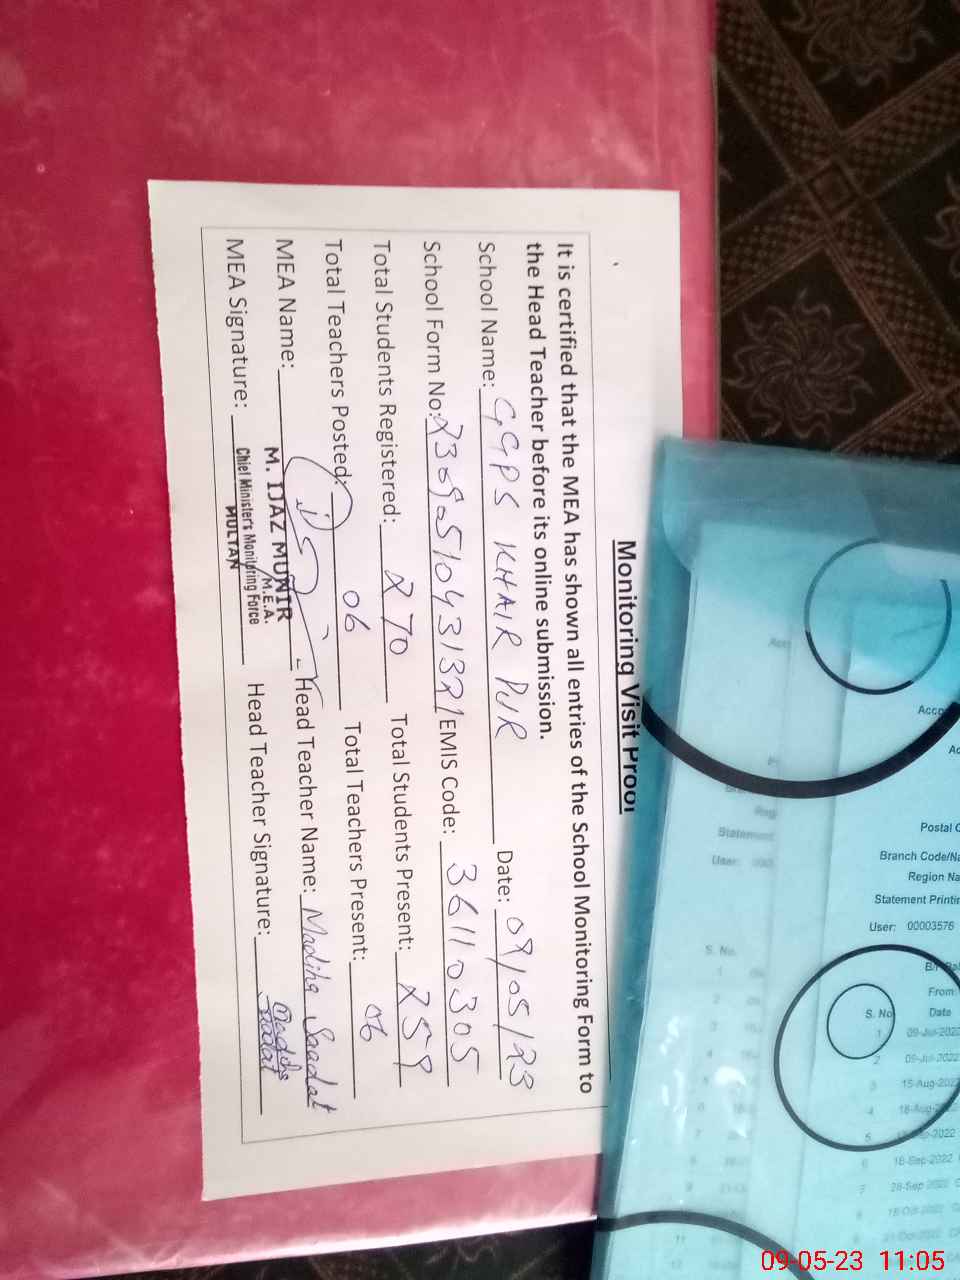 Monitoring Visit Proof
It is certified that the MEA has shown all entries of the School Monitoring Form to
the Head Teacher before its online submission.
School Name: GGPS KHAIR PUR Date: 09/05/23
School Form No: EMIS Code: 36110305
Total Students Registered: 270 Total Students Present: 259
Total Teachers Posted: 06 Total Teachers Present: 06
MEA Name: Head Teacher Name: Madiha Saadat
M. IJAZ MUNIR
M.E.A.
MEA Signature: Head Teacher Signature: Madiha Saadat
Chief Ministers Monitoring Force
MULTAN
Acco
Postal C
Branch Code/Na
Region Na
Statement Printin
User: 00003576
From:
S. No Date
1 09-Jul-2022
2 09-Jul-2022
3 15-Aug-2022
4 18-Aug-2
5
6 16-Sep-2022
28-Sep 2022
Statement
User:
S. No.
1
2
09-05-23 11:05